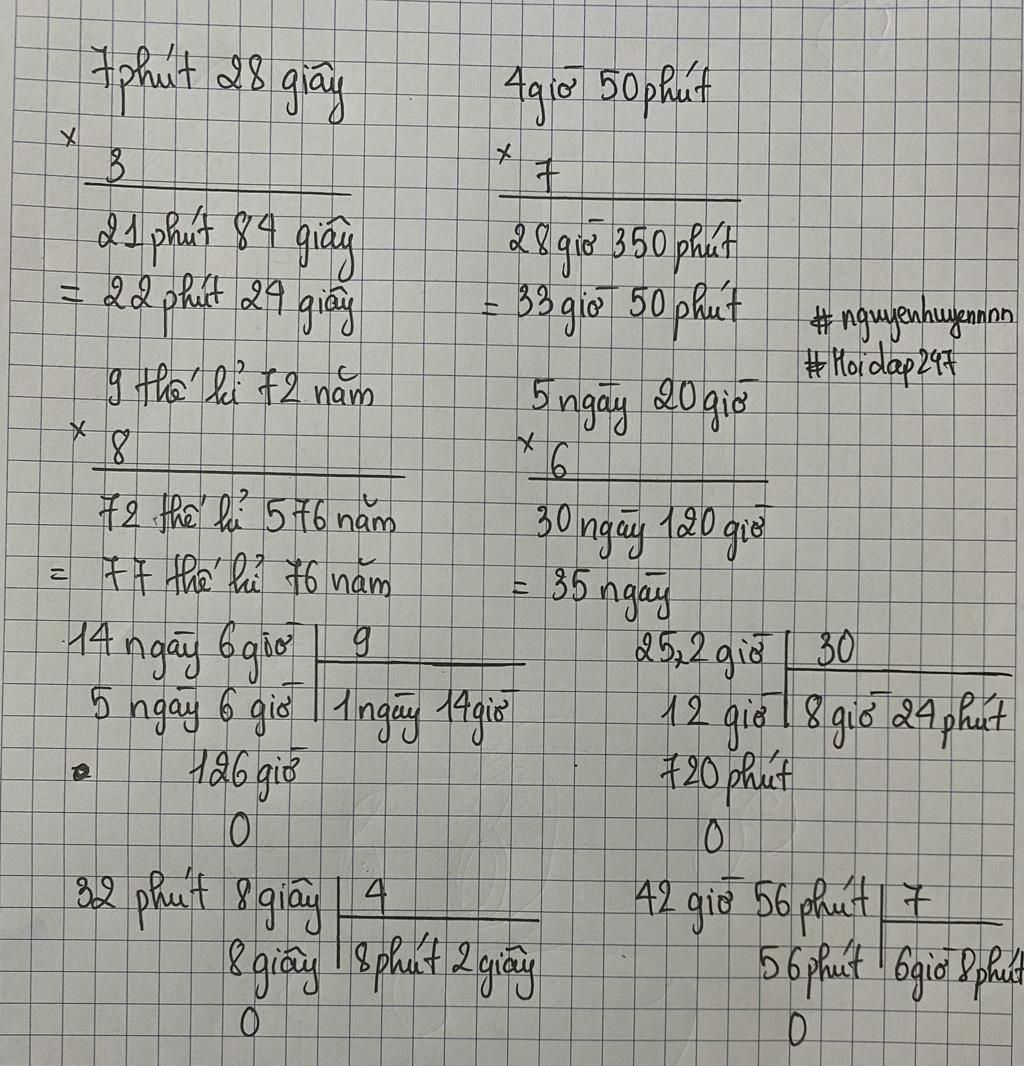 7 phút 28 giây
x
3
21 phút 84 giây
= 22 phút 24 giây
4 giờ 50 phút
x
7
28 giờ 350 phút
= 33 giờ 50 phút
#nguyenhuyennnn
#Hoidap247
9 thế kỉ 72 năm
x
8
72 thế kỉ 576 năm
= 77 thế kỉ 76 năm
5 ngày 20 giờ
x
6
30 ngày 120 giờ
= 35 ngày
14 ngày 6 giờ 9
5 ngày 6 giờ 1 ngày 14 giờ
126 giờ
0
25,2 giờ 30
12 giờ 8 giờ 24 phút
720 phút
0
32 phút 8 giây 4
8 giây 8 phút 2 giây
0
42 giờ 56 phút 7
56 phút 6 giờ 8 phút
0